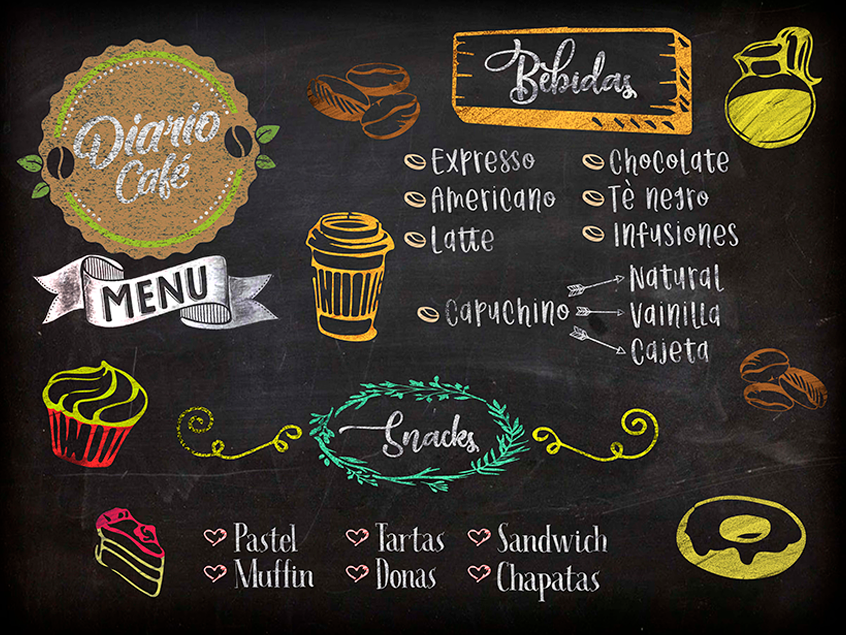 Diario
Café
MENU
Bebidas
Expresso
Americano
Latte
Chocolate
Tè negro
Infusiones
Capuchino
Natural
Vainilla
Cajeta
Snacks
Pastel
Muffin
Tartas
Donas
Sandwich
Chapatas